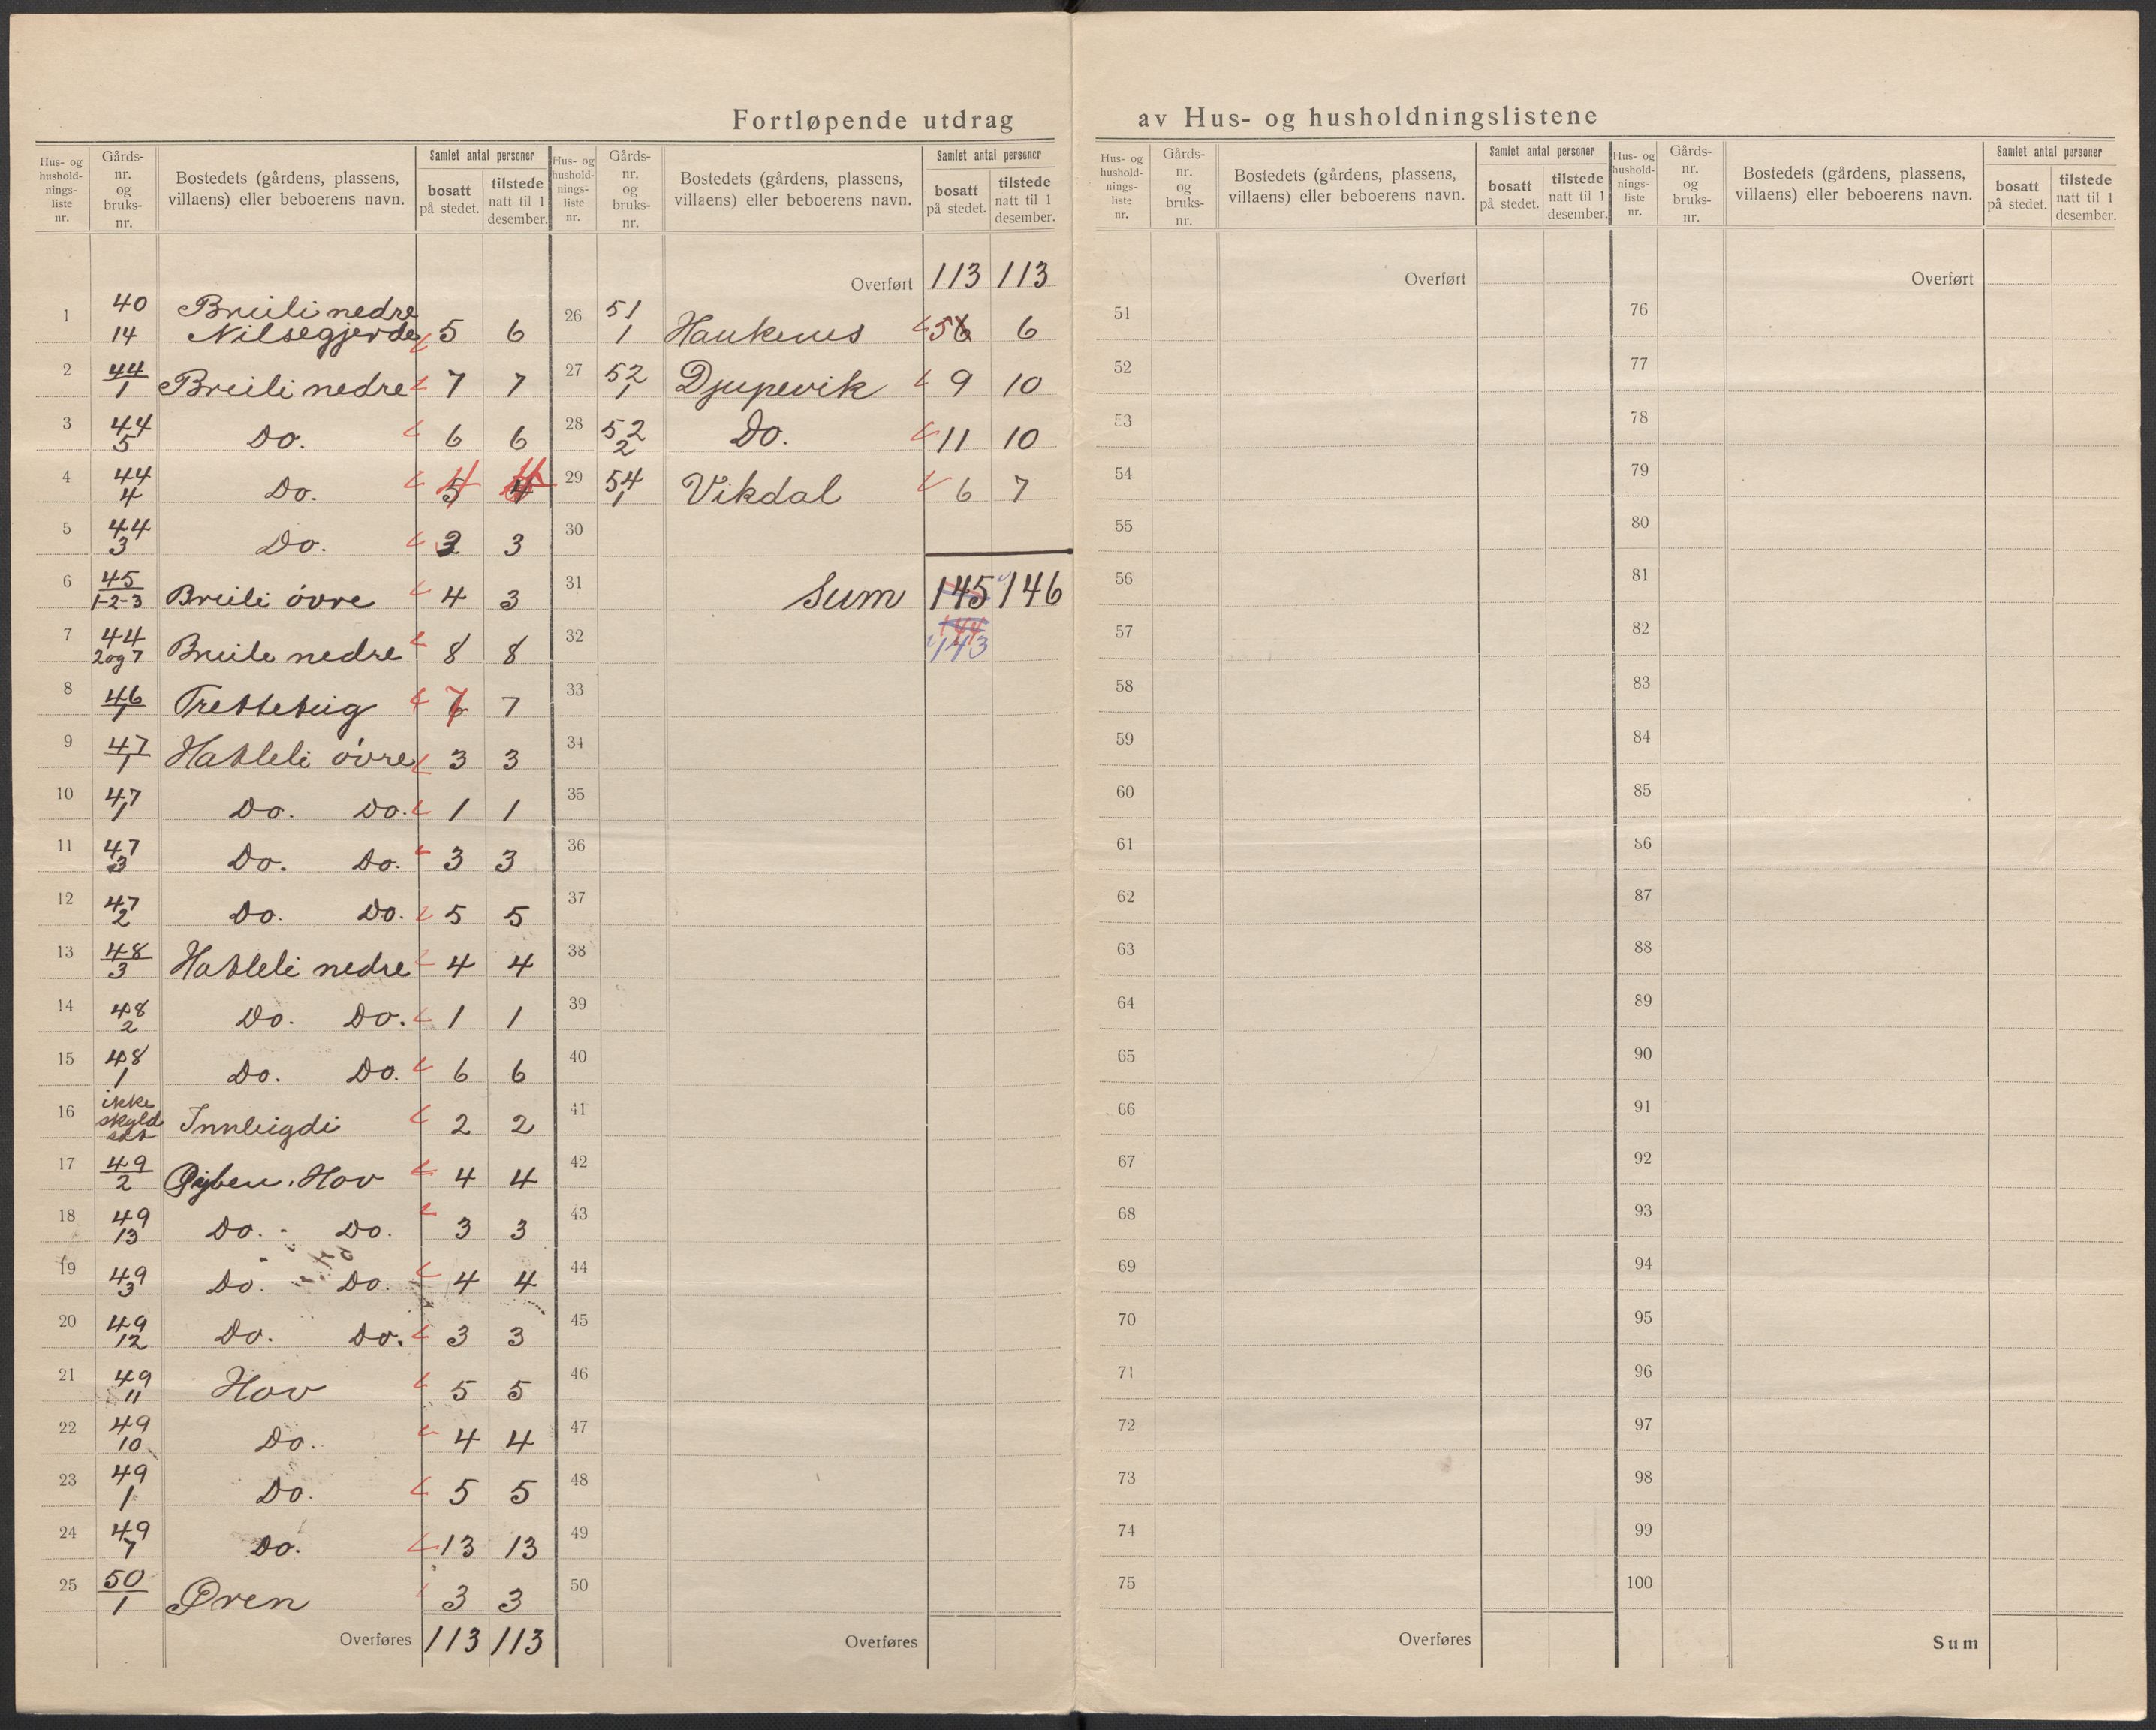 Fortløpende utdrag av Hus- og husholdningslistene
Hus- og hushold- nings- liste nr. | Gårds- nr. og bruks- nr. | Bostedets (gårdens, plassens, villaens) eller beboerens navn. | Samlet antal personer | bosatt på stedet. | tilstede natt til 1 desember.
1 | 40 14 | Breili nedre Nilsegjerde | 5 | 6
2 | 44 1 | Breili nedre | 7 | 7
3 | 44 5 | Do. | 6 | 6
4 | 44 4 | Do. | 5 4 | 4
5 | 44 3 | Do. | 3 | 3
6 | 45 1-2-3 | Breili övre | 4 | 3
7 | 44 2 og 7 | Breile nedre | 8 | 8
8 | 46 1 | Tretteteig | 7 | 7
9 | 47 1 | Hatleli övre | 3 | 3
10 | 47 1 | Do. Do. | 1 | 1
11 | 47 3 | Do. Do. | 3 | 3
12 | 47 2 | Do. Do. | 5 | 5
13 | 48 3 | Hatleli nedre | 4 | 4
14 | 48 2 | Do. Do. | 1 | 1
15 | 48 1 | Do. Do. | 6 | 6
16 | ikke skyld sat | Innleigdi | 2 | 2
17 | 49 2 | Hov | 4 | 4
18 | 49 13 | Do. - Do. | 3 | 3
19 | 49 3 | Do. Do. | 4 | 4
20 | 49 12 | Do. Do. | 3 | 3
21 | 49 11 | Hov | 5 | 5
22 | 49 10 | Do. | 4 | 4
23 | 49 1 | Do. | 5 | 5
24 | 49 7 | Do. | 13 | 13
25 | 50 1 | Øren | 3 | 3
Overføres 113 113
Hus- og hushold- nings- liste nr. | Gårds- nr. og bruks- nr. | Bostedets (gårdens, plassens, villaens) eller beboerens navn. | Samlet antal personer | bosatt på stedet. | tilstede natt til 1 desember.
Overført 113 113
26 | 51 1 | Haukenes | 5 6 | 6
27 | 52 1 | Djupevik | 9 | 10
28 | 52 2 | Do. | 11 | 10
29 | 54 1 | Vikdal | 6 | 7
30
31 | Sum | 145 | 146
32 | 144 143
33
34
35
36
37
38
39
40
41
42
43
44
45
46
47
48
49
50
Overføres
Hus- og hushold- nings- liste nr. | Gårds- nr. og bruks- nr. | Bostedets (gårdens, plassens, villaens) eller beboerens navn. | Samlet antal personer | bosatt på stedet. | tilstede natt til 1 desember.
Overført
51
52
53
54
55
56
57
58
59
60
61
62
63
64
65
66
67
68
69
70
71
72
73
74
75
Overføres
Hus- og hushold- nings- liste nr. | Gårds- nr. og bruks- nr. | Bostedets (gårdens, plassens, villaens) eller beboerens navn. | Samlet antal personer | bosatt på stedet. | tilstede natt til 1 desember.
Overført
76
77
78
79
80
81
82
83
84
85
86
87
88
89
90
91
92
93
94
95
96
97
98
99
100
Sum